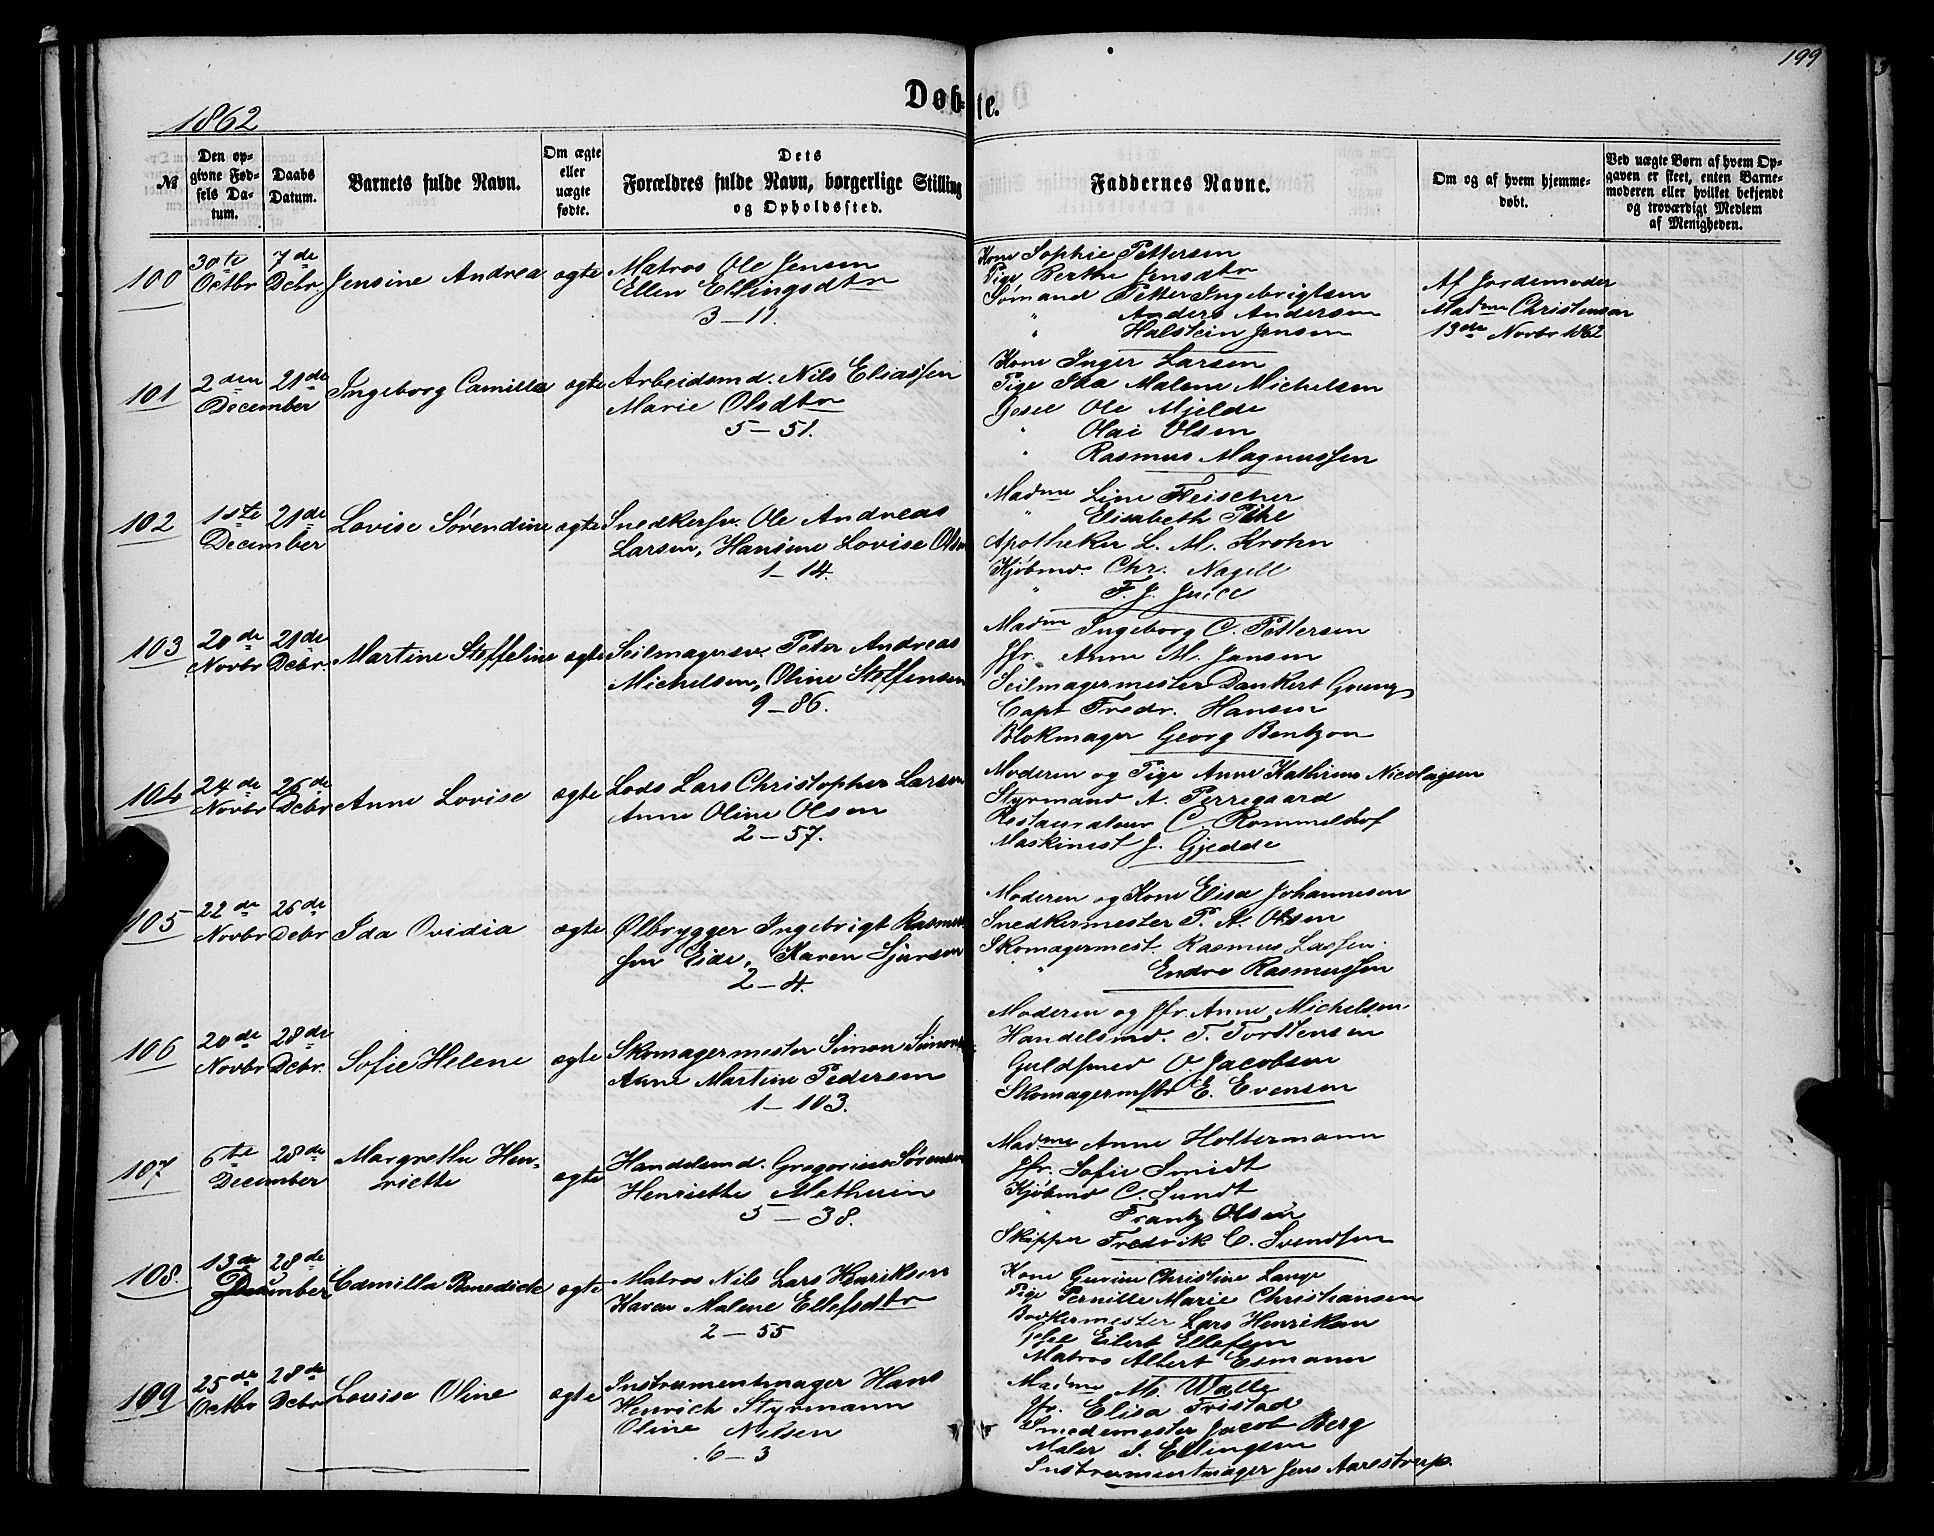 199
Døbte.
1862
№
Den op-
givne Fød-
sels Da-
tum.
Daabs
Datum.
Barnets fulde Navn.
Om ægte
eller
uægte
fødte.
Dets
Forældres fulde Navn, borgerlige Stilling
og Opholdssted.
Faddernes Navne.
Om og af hvem hjemme-
døbt.
Ved uægte Børn af hvem Op-
gaven er skeet, enten Barne-
moderen eller hvilket bekjendt
og troværdigt Medlem
af Menigheden.
100
30te Octbr
7de Dcbr.
Jensine Andrea
ægte
Matros Ole Jensen
Ellen Ellingsdtr
3 — 11
Kone Sophie Pettersen
Pige Berthe Jensdtr
Sømand Petter Ingebrigtsen
" Anders Andersen
" Halstein Jensen
Af Jordemoder
Madme Christensen
13de Novbr 1862
101
2den 21de
December
Ingeborg Camilla
ægte
Arbeidsmd. Nils Eliassen
Marie Olsdtr
5 — 51.
Kone Inger Larsen
Pige Ska Malene Michelsen
Gesel Ole Mjelde
" Olai Olsen
" Rasmus Magnussen
102
1ste 21de
December
Lovise Sørendine
ægte
Snedkersv. Ole Andreas
Larsen, Hansine Lovise Olsn
1 — 14.
Madme Line Fleischer
" Elisabeth Pihl
Apotheker L. M. Krohn
Kjøbmd. Chr. Nagell
" F. J.
103
20de Novbr
21de Dcbr.
Martine Steffeline
ægte
Seilmagersv. Peter Andreas
Michelsen, Oline Steffensen
9 — 86.
Madme Ingeborg C. Pettersen
Jfr. Anne M. Jansen
Seilmagermester Dankert
Capt Fredr. Hansen
Blokmager Georg Bentzon
104
24de Novbr
26de Dcbr
Anne Lovise
ægte
Lods Lars Christopher Larsen
Anne Oline Olsen
2 — 57.
Moderen og Pige Anne Kathrine Nicolaysen
Styrmand A. Perregaard
Restauratour C. Rommelhof
Maskinist J. Gjedde
105
22de Novbr
26de Dcbr
Ida Ovidia
ægte
Ølbrygger Ingebrigt Rasmus-
sen Eide, Karen Sjursen
2 — 4.
Moderen og Kone Elisa Johannesen
Snedkermester P. A. Olsen
Skomagermest Rasmus Lassen
" Endre Rasmussen
106
20de Novbr
28de Dcbr.
Sofie Helene
ægte
Skomagermester Simon Simons
Anne Martine Pedersen
1 — 103.
Moderen og Jfr. Anne Michelsen
Handelsmd. T. Torstensen
Guldsmed O. Jacobsen
Skomagermstr E. Evensen
107
6te 28de
December
Margrethe Hen-
riette
ægte
Handelsmd. Gregorius Sørensen
Henriette Methuin
5 — 38.
Madme Anne Holtermann
Jfr. Sofie Smidt
Kjøbmd C. Sundt
" Frantz Olsen
Skipper Fredrik C. Svendsen
108.
13de 28de
December
Camilla Benedicte
ægte
Matros Nils Lars Henriksen
Karen Malene Ellefsdtr
2 — 55
Kone Christine Lange
Pige Pernille Marie Christiansen
Bødkermester Lars Henriksen
Gesel Eilert Ellefsen
Matros Albert Esmann
109
25de Octbr
28de Dcbr
Louise Oline
ægte
Instrumentmager Hans
Henrich Styrmann
Oline Nilsen
6 — 3
Madme M. Walle
Jfr. Elisa Fristad
Smedemester Jacob Berg
Maler S. Ellingsen
Instrumentmager Jens Aarestrup.